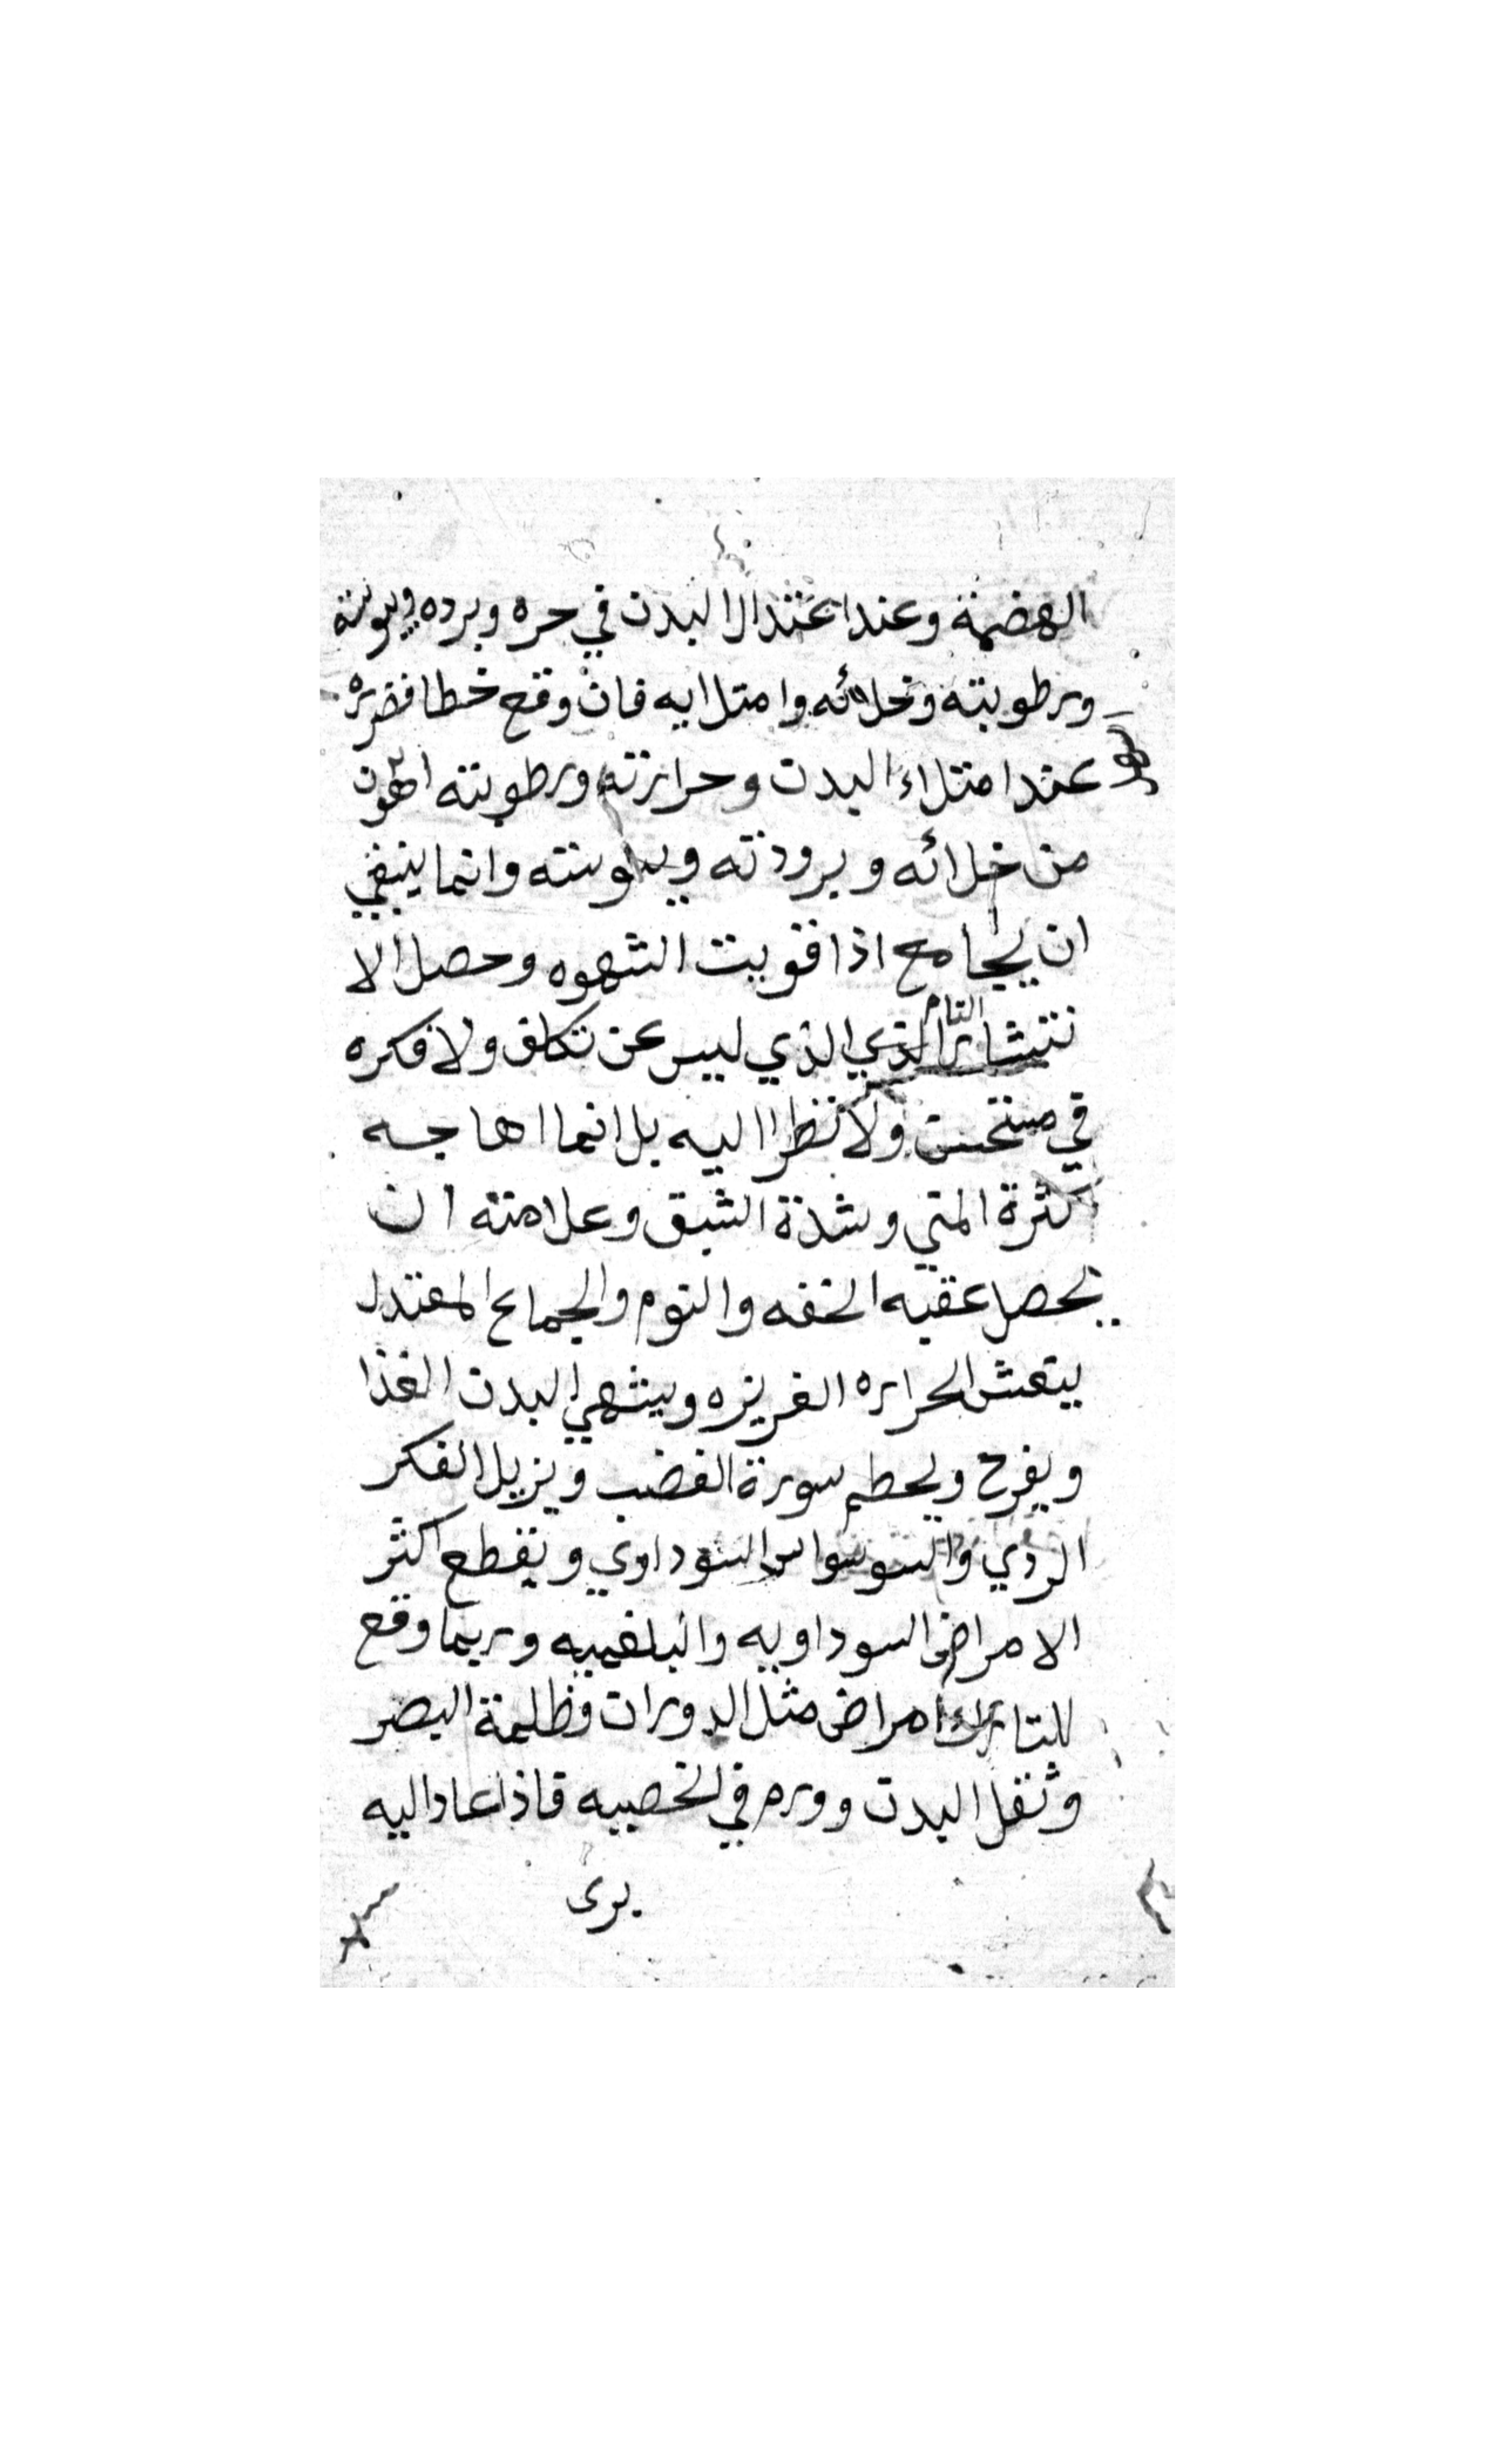 الهضمة وعند اعتدال البدن في حره وبرده ويبوسته
ورطوبته وخلائه وامتلايه فان وقع خطا فضرره
عند امتلاء البدن وحرارته ورطوبته اهون
من خلائه وبرودته ويبوسته وانما ينبغي
ان يجامع اذا قويت الشهوه وحصل الا
نتشار التام الذي الذي ليس عن تكلف ولا فكره
في مستحسن ولا نظر اليه بل انما اهاجه
كثرة المني وشدة الشبق وعلامته ان
يحصل عقبه الخفه والنوم والجماع المعتدل
ينعش الحراره الغريزه ويشهي البدن الغذا
ويفرح ويحطم سورة الغضب ويزيل الفكر
الردي والوسواس السوداوي ويقطع اكثر
الامراض السوداويه والبلغميه وربما وقع
للتارك امراض مثل الدوران وظلمة البصر
وثقل البدن وورم في الخصيه فاذا عاد اليه
برى